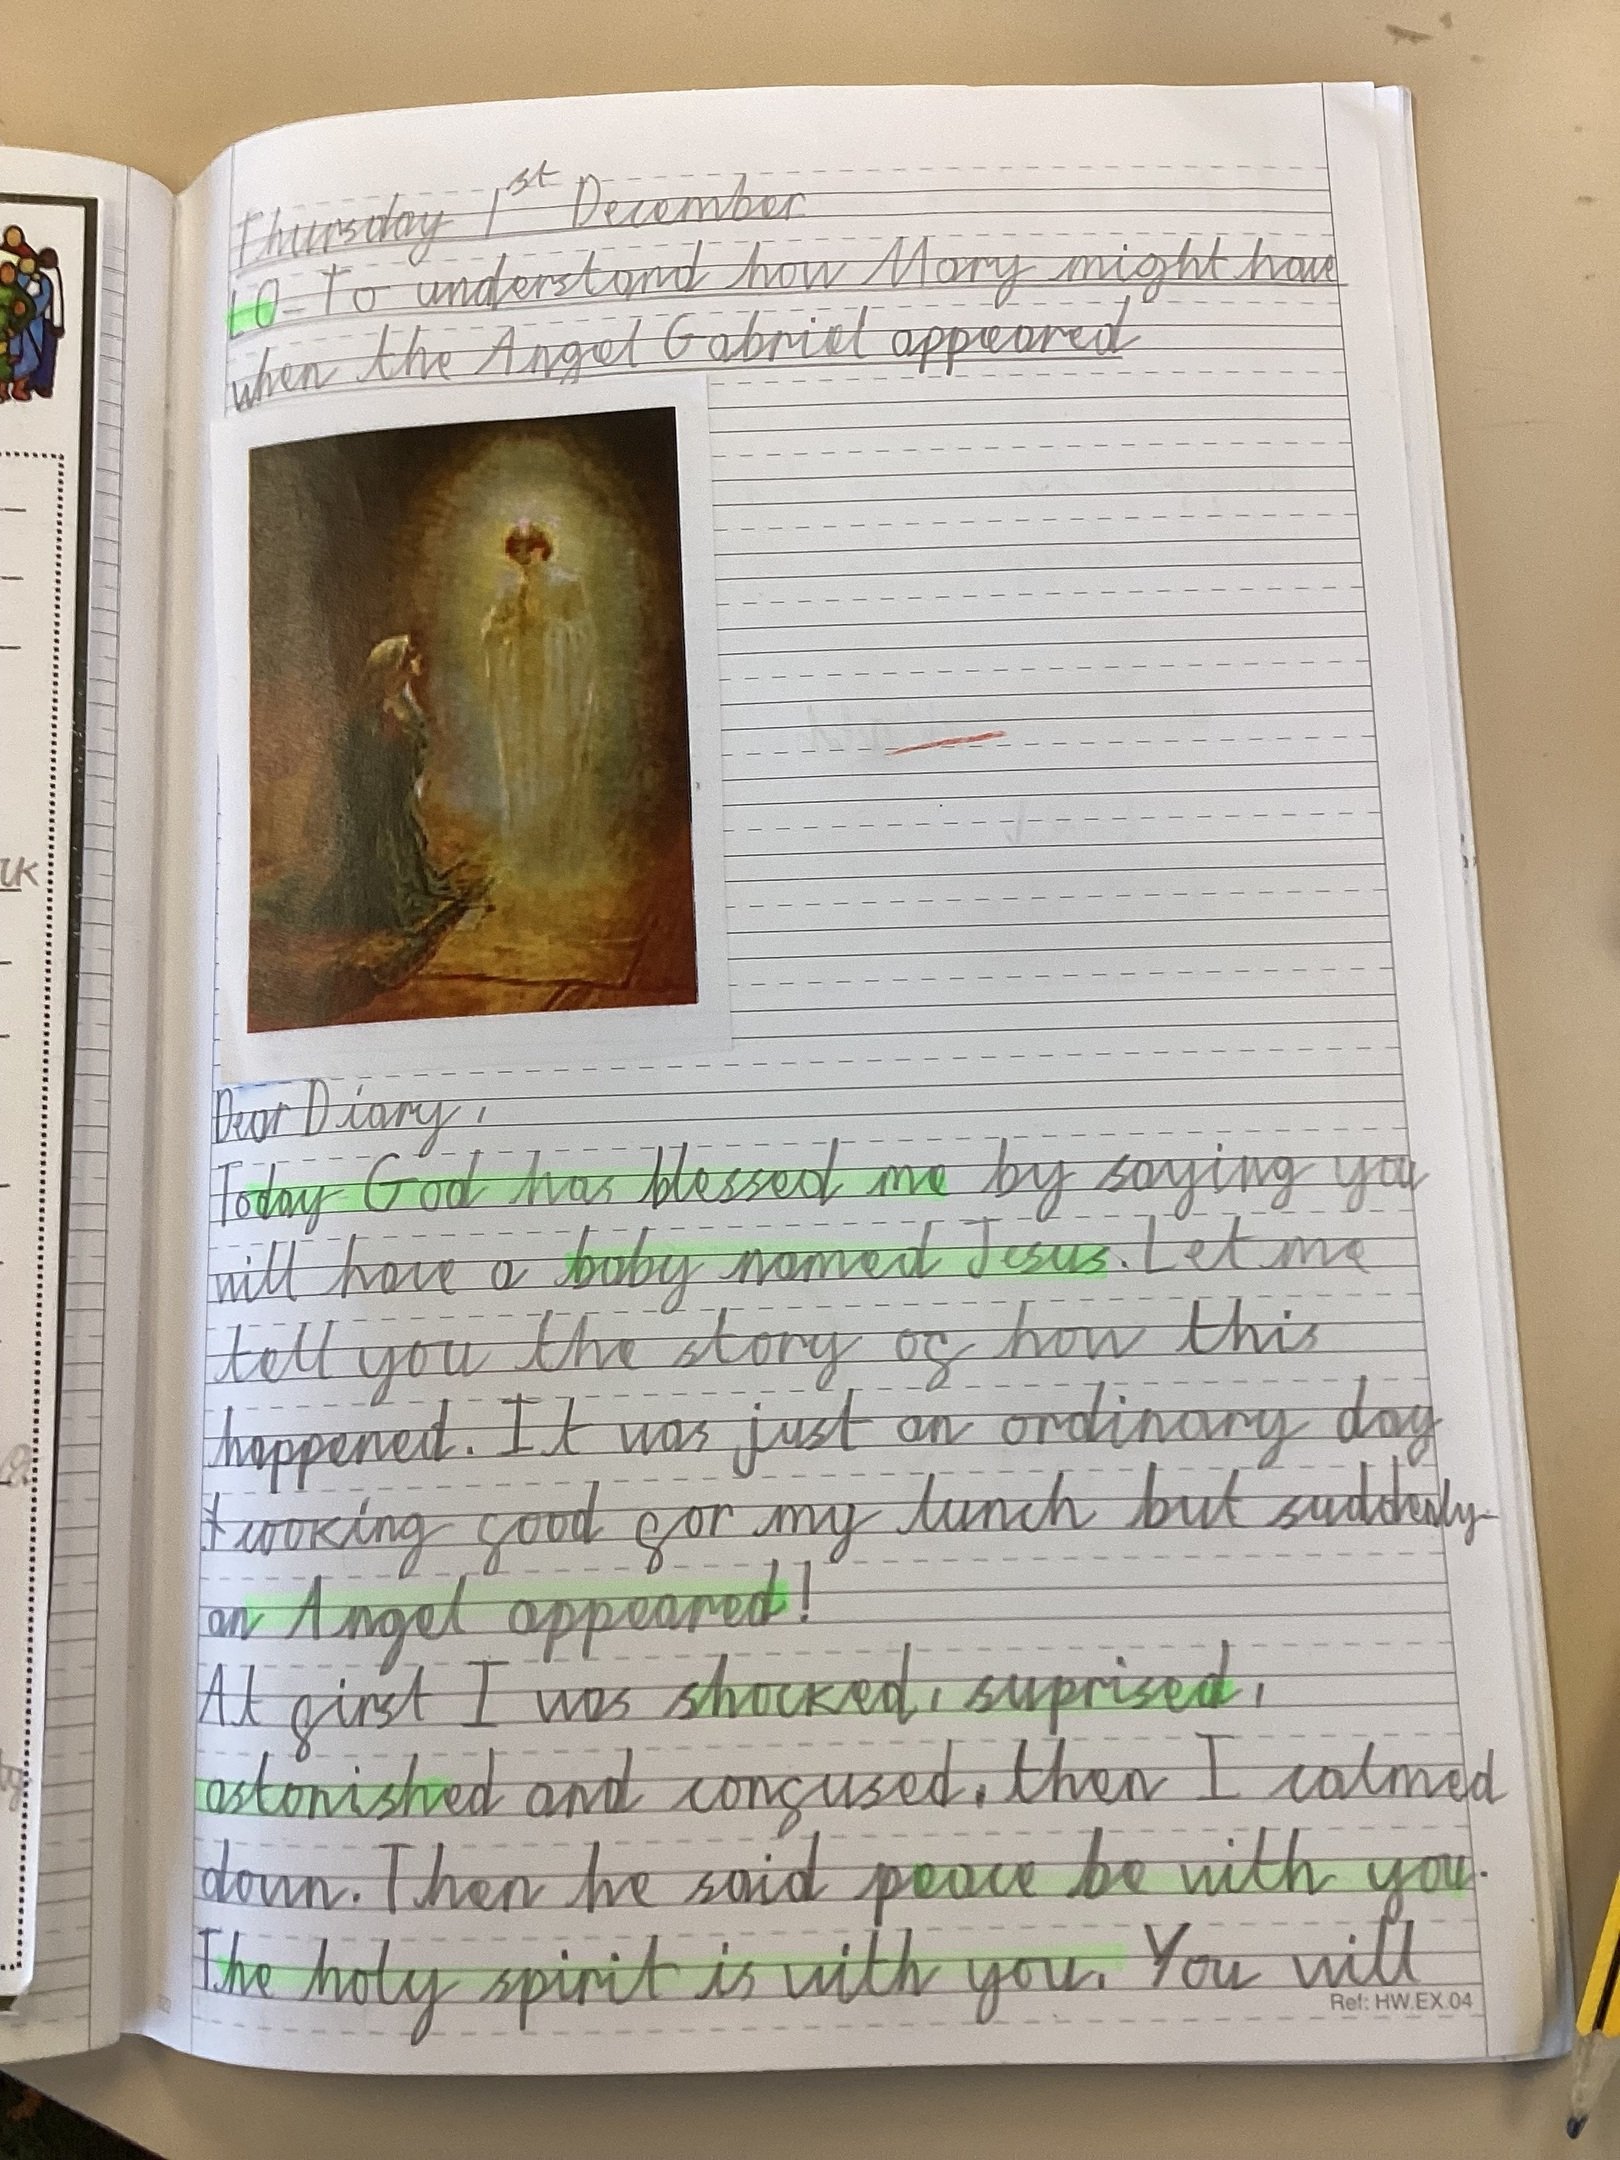 Thursday 1st December
LO- To understand how Mary might have
when the Angel Gabriel appeared
Dear Diary,
Today God has blessed me by saying you
will have a baby named Jesus. Let me
tell you the story of how this
happened. It was just an ordinary day
cooking food for my lunch but suddenly-
an Angel appeared!
At first I was shocked, suprised,
astonished and confused, then I calmed
down. Then he said peace be with you.
The holy spirit is with you. You will
Ref: HW.EX.04